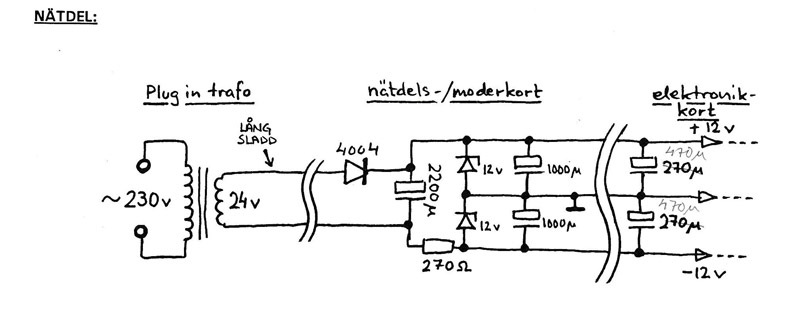 NÄTDEL:
Plug in trafo
nätdels-/moderkort
elektronik-
kort
+12v
LÅNG
SLADD
4004
~230v
24v
2200µ
12v
1000µ
470µ
270µ
12v
1000µ
470µ
270µ
270Ω
-12v